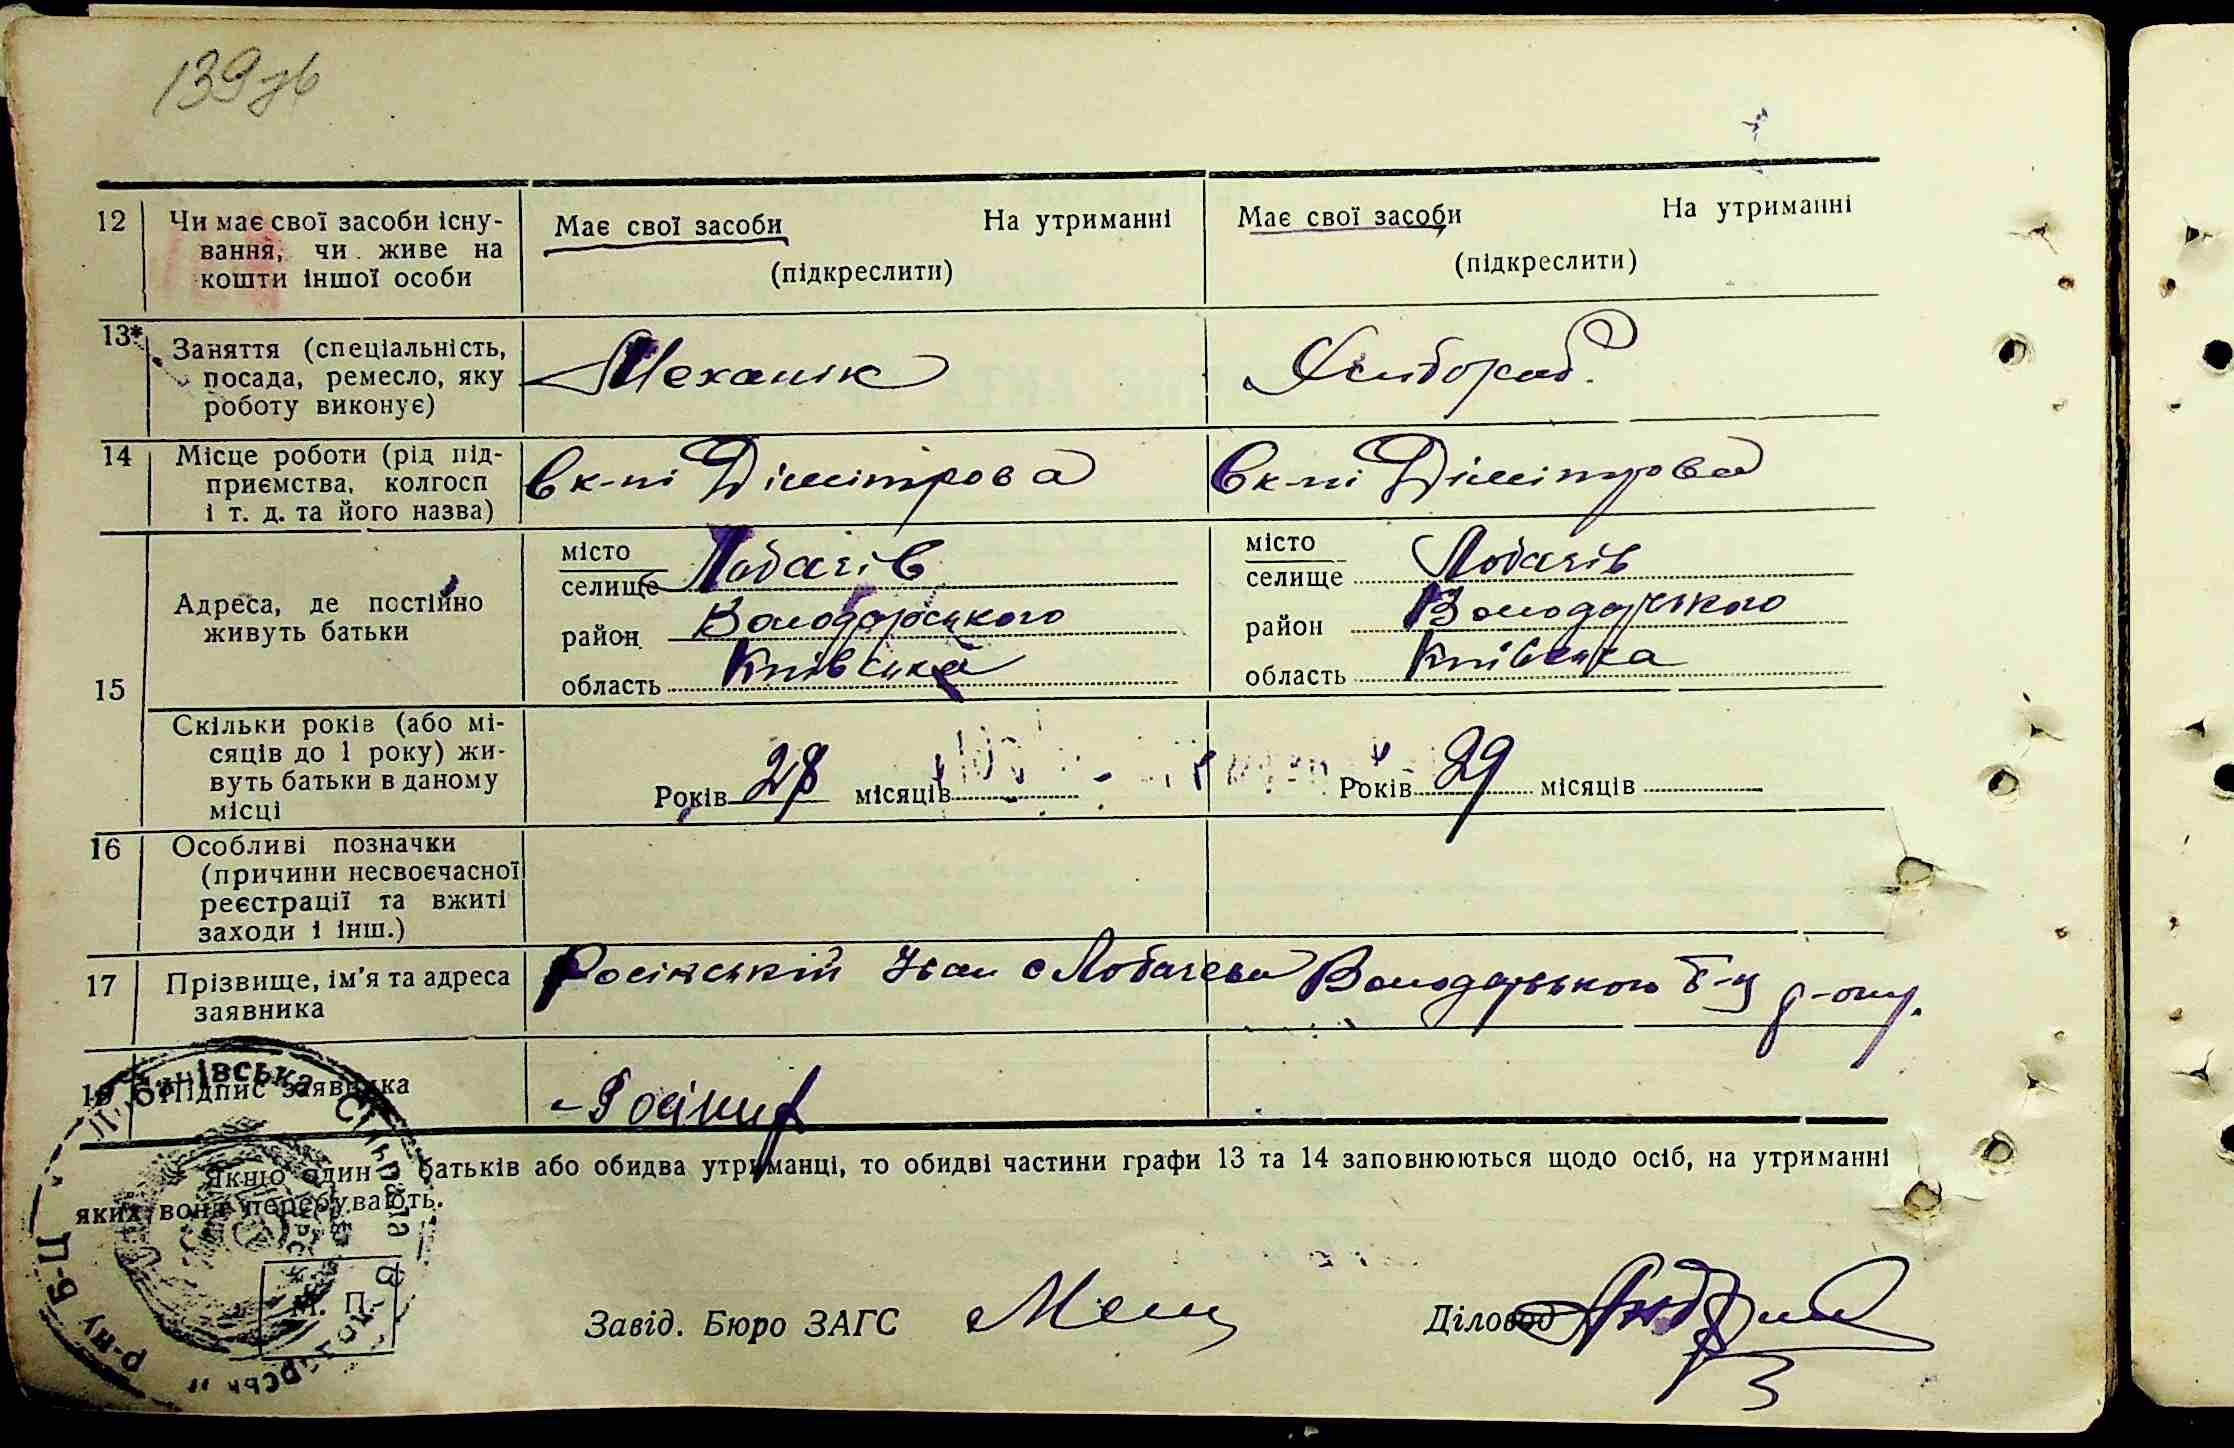 139зв
12 Чи має свої засоби існу-
вання, чи живе на
кошти іншої особи
Має свої засоби На утриманні
(підкреслити)
Має свої засоби На утриманні
(підкреслити)
13* Заняття (спеціальність,
посада, ремесло, яку
роботу виконує)
Механік
14 Місце роботи (рід під-
приємства, колгосп
і т. д. та його назва)
в к-пі Дімітрова
в к-пі Дімітрова
15 Адреса, де постійно
живуть батьки
місто
селище Лобачів
район Володарського
область Київська
місто
селище Лобачів
район Володарського
область Київська
Скільки років (або мі-
сяців до 1 року) жи-
вуть батьки в даному
місці
Років 28 місяців
Років 29 місяців
16 Особливі позначки
(причини несвоєчасної
реєстрації та вжиті
заходи і інш.)
17 Прізвище, ім'я та адреса
заявника
Росінський Іван с Лобачева Володарського Б-Ц р-ону.
18 Підпис заявника
* Якщо один з батьків або обидва утриманці, то обидві частини графи 13 та 14 заповнюються щодо осіб, на утриманні
яких вони перебувають.
М. П.
Завід. Бюро ЗАГС
Діловод
Сільрада
р-ну Б-Ц